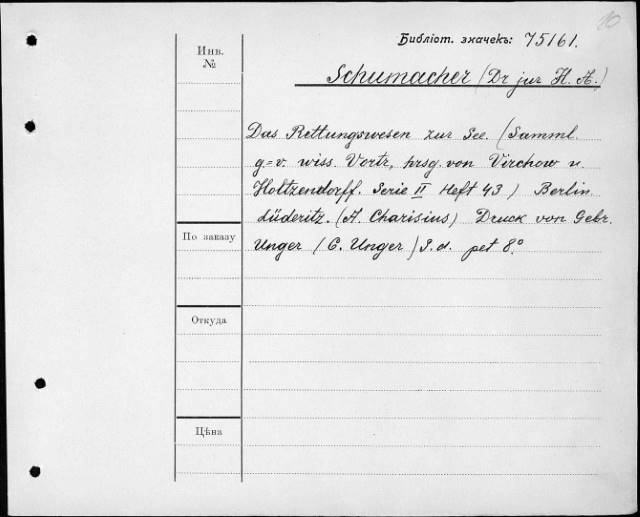 10
Библіот. значекъ: 75161.
Инв.
№
Schumacher (Dr jur H. A.)
Das Rettungswesen zur See. (Samml.
g=v. wiss. Vortr., hrsg. von Virchow u.
Holtzendorff. Serie II Heft 43) Berlin.
Lüderitz. (A. Charisius) Druck von Gebr.
Unger (C. Unger) S. d. pet 8º
По заказу
Откуда
Цѣна